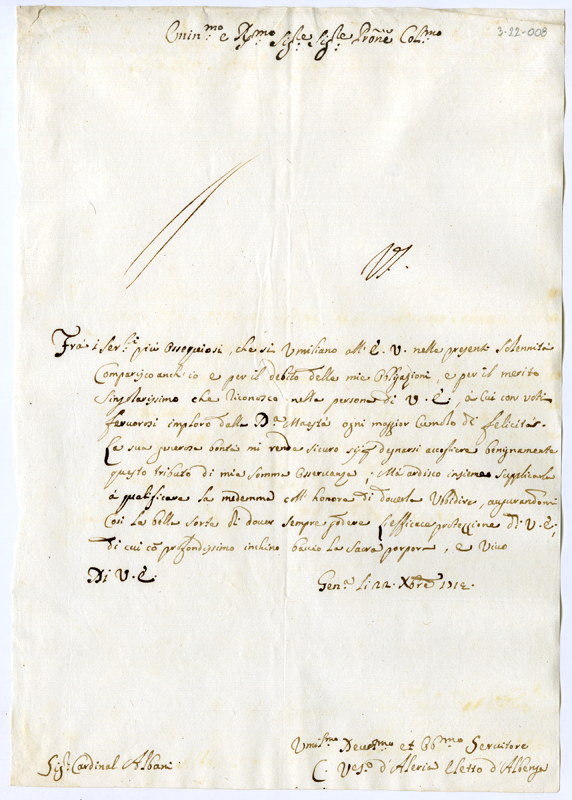 3-22-008
Emin.mo e R.mo Sig.re Sig.re Prõne Col.mo
Frà i Ser.ri più Ossequiosi, che si Umiliano all' E. V. nelle presenti Solennità
Comparisco anch'io e per il debito delle mie Obligazioni, e per il merito
Singolarissimo che riconosco nella persona di V. E., à Cui con voti
feruorosi imploro dalla D.a Maestà ogni maggior Cumulo di felicità.
La sua generosa bontà mi rende sicuro degnarsi accogliere benignamente
questo tributo di mia somma Osseruanza. Mi ardisco insieme Supplicarla
à qualificare la medema coll' honore di douerla Ubidire, augurandomi
Così la bella sorte di douer sempre godere l'efficace protezzione di V. E.,
di cui cõ profondissimo inchino baccio la Sacra porpora, e Viuo
Di V. E.
Gen.a li 22. Xbre 1712.
Umil.mo Deuot.mo et Ob.mo Seruitore
Sig.r Cardinal Albani
C. Ves.o d'Aleria eletto d'Albenga